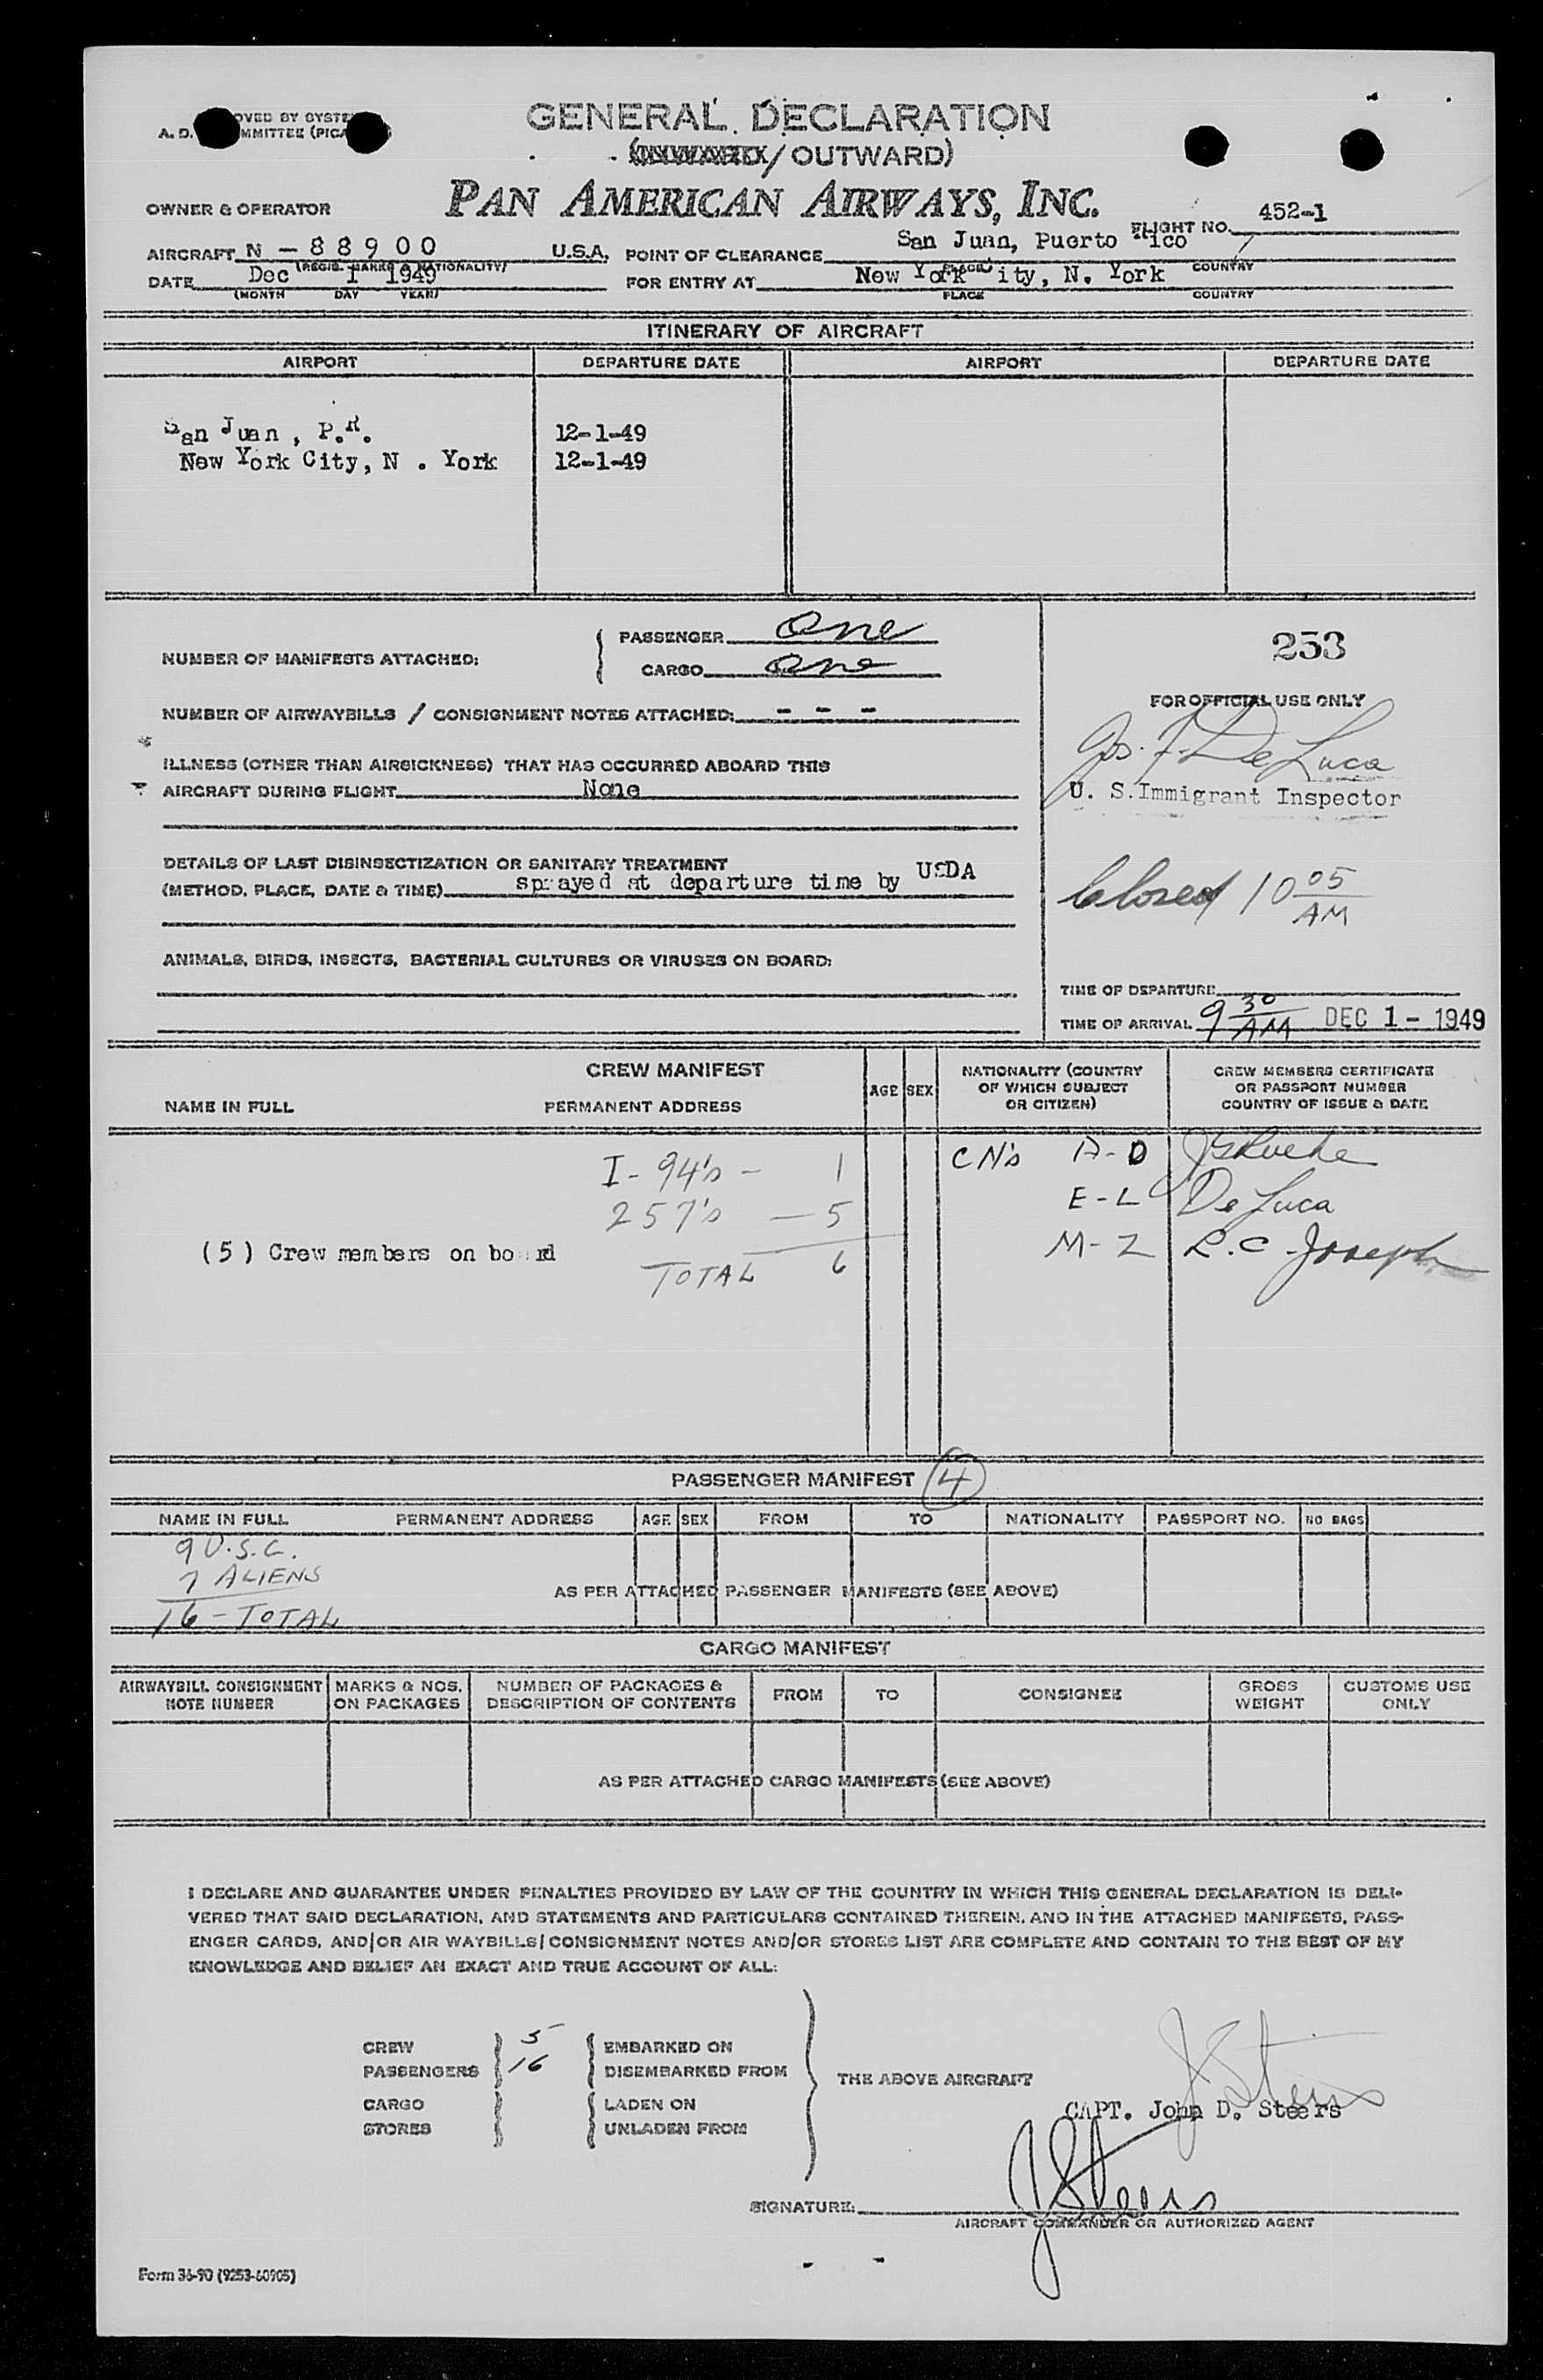 A. D. OVED BY SYSTE
MMITTEE (PICA
GENERAL DECLARATION
(INWARD / OUTWARD)
PAN AMERICAN AIRWAYS, INC.
OWNER & OPERATOR
FLIGHT NO. 452-1
AIRCRAFT N - 88900 U.S.A. POINT OF CLEARANCE San Juan, Puerto ico
(REGIS. MARKS & NATIONALITY) PLACE COUNTRY
DATE Dec 1 1949 FOR ENTRY AT New York ity, N. York
(MONTH DAY YEAR) PLACE COUNTRY
ITINERARY OF AIRCRAFT
AIRPORT DEPARTURE DATE AIRPORT DEPARTURE DATE
San Juan, P.R. 12-1-49
New York City, N. York 12-1-49
NUMBER OF MANIFESTS ATTACHED: PASSENGER One
CARGO One
253
NUMBER OF AIRWAYBILLS / CONSIGNMENT NOTES ATTACHED: - - -
FOR OFFICIAL USE ONLY
Jos. F. De Luca
U. S. Immigrant Inspector
ILLNESS (OTHER THAN AIRSICKNESS) THAT HAS OCCURRED ABOARD THIS
AIRCRAFT DURING FLIGHT None
DETAILS OF LAST DISINSECTIZATION OR SANITARY TREATMENT
(METHOD, PLACE, DATE & TIME) sprayed at departure time by USDA
Closed 10 05 AM
ANIMALS, BIRDS, INSECTS, BACTERIAL CULTURES OR VIRUSES ON BOARD:
TIME OF DEPARTURE
TIME OF ARRIVAL 9 30 AM DEC 1 - 1949
CREW MANIFEST
NAME IN FULL PERMANENT ADDRESS AGE SEX NATIONALITY (COUNTRY OF WHICH SUBJECT OR CITIZEN) CREW MEMBERS CERTIFICATE OR PASSPORT NUMBER COUNTRY OF ISSUE & DATE
I-94's - 1 CN's A-D
257's - 5 E-L De Luca
(5) Crew members on bo rd M-Z R.C. Joseph
TOTAL 6
PASSENGER MANIFEST 4
NAME IN FULL PERMANENT ADDRESS AGE SEX FROM TO NATIONALITY PASSPORT NO. NO BAGS
9 U.S.C.
7 ALIENS
AS PER ATTACHED PASSENGER MANIFESTS (SEE ABOVE)
16 - TOTAL
CARGO MANIFEST
AIRWAYBILL CONSIGNMENT NOTE NUMBER MARKS & NOS. ON PACKAGES NUMBER OF PACKAGES & DESCRIPTION OF CONTENTS FROM TO CONSIGNEE GROSS WEIGHT CUSTOMS USE ONLY
AS PER ATTACHED CARGO MANIFESTS (SEE ABOVE)
I DECLARE AND GUARANTEE UNDER PENALTIES PROVIDED BY LAW OF THE COUNTRY IN WHICH THIS GENERAL DECLARATION IS DELI-
VERED THAT SAID DECLARATION, AND STATEMENTS AND PARTICULARS CONTAINED THEREIN, AND IN THE ATTACHED MANIFESTS, PASS-
ENGER CARDS, AND/OR AIR WAYBILLS/CONSIGNMENT NOTES AND/OR STORES LIST ARE COMPLETE AND CONTAIN TO THE BEST OF MY
KNOWLEDGE AND BELIEF AN EXACT AND TRUE ACCOUNT OF ALL:
CREW 5 EMBARKED ON
PASSENGERS 16 DISEMBARKED FROM
THE ABOVE AIRCRAFT
CARGO LADEN ON
STORES UNLADEN FROM
JSteers
CAPT. John D. Steers
SIGNATURE: JSteers
AIRCRAFT COMMANDER OR AUTHORIZED AGENT
Form 36-90 (9253-60905)